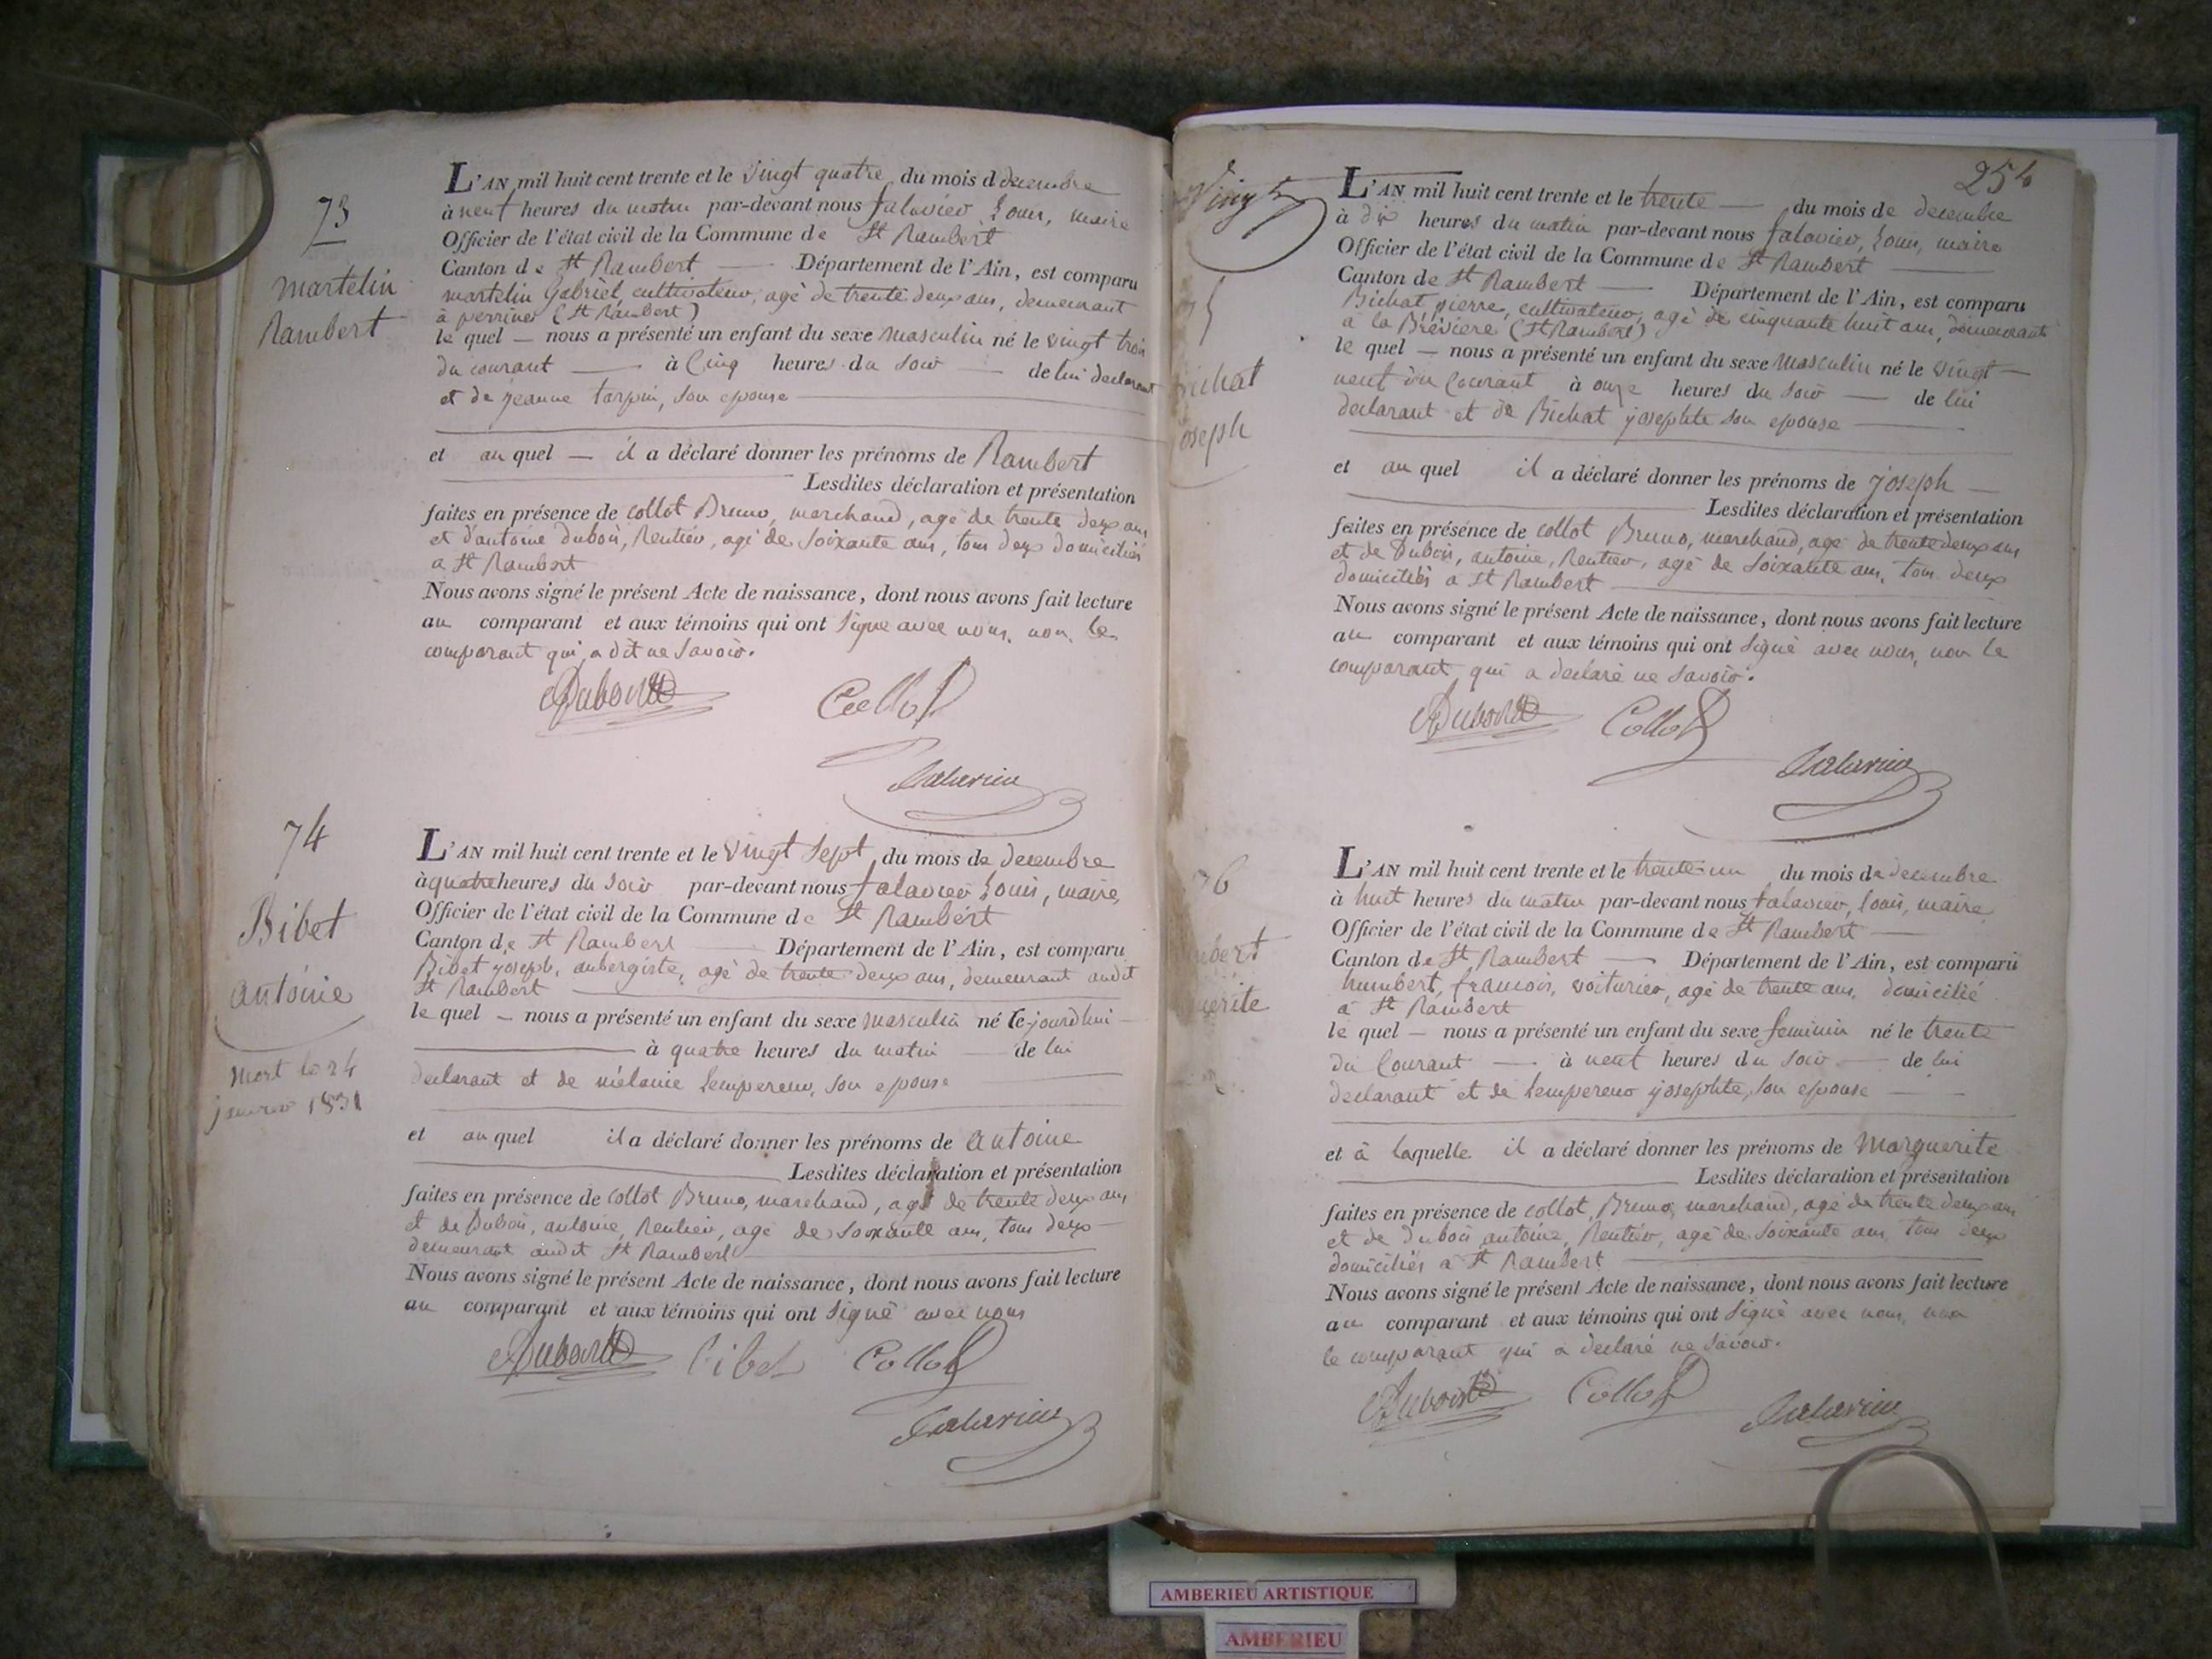 73
Martelin
Rambert
L'AN mil huit cent trente et le vingt quatre du mois d decembre
à neuf heures du matin par-devant nous falavier Louis, maire
Officier de l'état civil de la Commune de St Rambert
Canton de St Rambert — Département de l'Ain, est comparu
martelin Gabriel, cultivateur, agé de trente deux ans, demeurant
à perrines (St Rambert)
le quel — nous a présenté un enfant du sexe masculin né le vingt trois
du courant — à cinq heures du soir — de lui declarant
et de jeanne tarpin, son epouse —
et au quel — il a déclaré donner les prénoms de Rambert
Lesdites déclaration et présentation
faites en présence de collot Bruno, marchand, agé de trente deux ans
et d'antoine dubois, Rentier, agé de soixante ans, tous deux domiciliés
a St Rambert
Nous avons signé le présent Acte de naissance, dont nous avons fait lecture
au comparant et aux témoins qui ont signé avec nous, non le
comparant qui a dit ne savoir.
Dubois Collot
falavier
74
Bibet
antoine
Mort le 24
janvier 1831
L'AN mil huit cent trente et le vingt sept du mois de decembre
à quatre heures du soir par-devant nous falavier Louis, maire,
Officier de l'état civil de la Commune de St Rambert
Canton de St Rambert — Département de l'Ain, est comparu
Bibet joseph, aubergiste, agé de trente deux ans, demeurant audit
St Rambert —
le quel — nous a présenté un enfant du sexe masculin né ce jourd'hui —
— à quatre heures du matin — de lui
declarant et de mélanie Lempereur, son epouse —
et au quel il a déclaré donner les prénoms de antoine
Lesdites déclaration et présentation
faites en présence de collot Bruno, marchand, agé de trente deux ans
et de Dubois, antoine, Rentier, agé de soixante ans, tous deux
demeurant audit St Rambert —
Nous avons signé le présent Acte de naissance, dont nous avons fait lecture
au comparant et aux témoins qui ont signé avec nous
Dubois Bibet Collot
falavier
254
Vingt
5
Bichat
joseph
L'AN mil huit cent trente et le trente — du mois de decembre
à dix heures du matin par-devant nous falavier, Louis, maire
Officier de l'état civil de la Commune de St Rambert —
Canton de St Rambert — Département de l'Ain, est comparu
Bichat pierre, cultivateur, agé de cinquante huit ans, demeurant
à la Brévière (St Rambert)
le quel — nous a présenté un enfant du sexe masculin né le vingt —
neuf du courant à onze heures du soir — de lui
declarant et de Bichat josephte son epouse —
et au quel il a déclaré donner les prénoms de joseph —
Lesdites déclaration et présentation
faites en présence de collot Bruno, marchand, agé de trente deux ans
et de Dubois, antoine, Rentier, agé de soixante ans, tous deux
domiciliés a St Rambert —
Nous avons signé le présent Acte de naissance, dont nous avons fait lecture
au comparant et aux témoins qui ont signé avec nous, non le
comparant qui a declaré ne savoir.
Dubois Collot
falavier
76
bert
uerite
L'AN mil huit cent trente et le trente un du mois de decembre
à huit heures du matin par-devant nous falavier, louis, maire,
Officier de l'état civil de la Commune de St Rambert —
Canton de St Rambert — Département de l'Ain, est comparu
humbert, francois, voiturier, agé de trente ans, domicilié
à St Rambert
le quel — nous a présenté un enfant du sexe feminin né le trente
du Courant — à neuf heures du soir — de lui
declarant et de Lempereur josephte, son epouse —
et à laquelle il a déclaré donner les prénoms de Marguerite
Lesdites déclaration et présentation
faites en présence de collot, Bruno, marchand, agé de trente deux ans
et de dubois antoine, Rentier, agé de soixante ans, tous deux
domiciliés à St Rambert —
Nous avons signé le présent Acte de naissance, dont nous avons fait lecture
au comparant et aux témoins qui ont signé avec nous, non
le comparant qui a declaré ne savoir.
Dubois Collot
falavier
AMBERIEU ARTISTIQUE
AMBERIEU